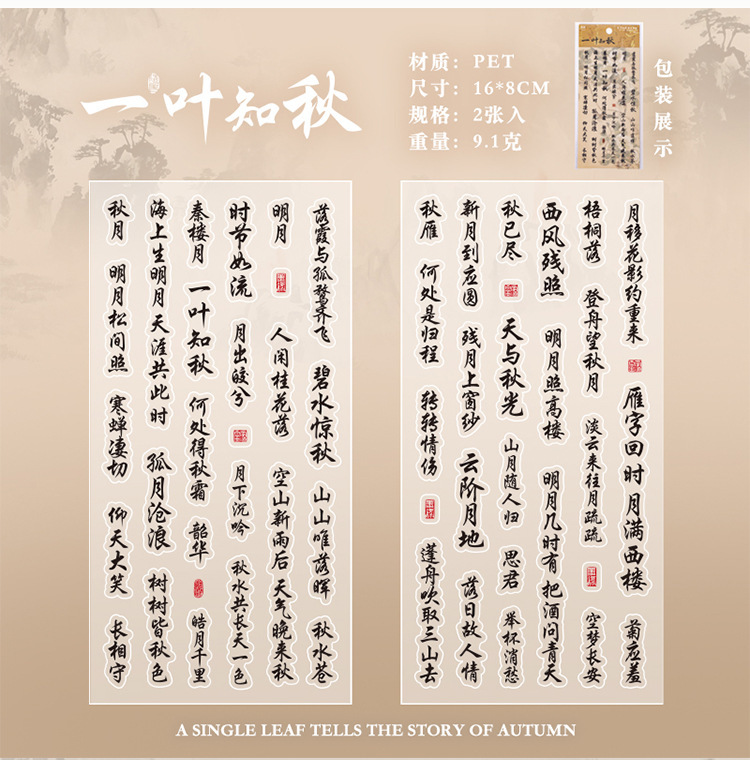 一叶知秋
材质：PET
尺寸：16*8CM
规格：2张入
重量：9.1克
包装展示
一叶知秋
落霞与孤鹜齐飞 碧水惊秋 山山唯落晖 秋水苍
明月 人闲桂花落 空山新雨后 天气晚来秋
时节如流 月出皎兮 月下沉吟 秋水共长天一色
秦楼月 一叶知秋 何处得秋霜 韶华 皓月千里
海上生明月 天涯共此时 孤月沧浪 树树皆秋色
秋月 明月松间照 寒蝉凄切 仰天大笑 长相守
月移花影约重来 雁字回时月满西楼 菊应羞
梧桐落 登舟望秋月 淡云来往月疏疏 空梦长安
西风残照 明月照高楼 明月几时有 把酒问青天
秋已尽 天与秋光 山月随人归 思君 举杯消愁
新月到应圆 残月上窗纱 云阶月地 落日故人情
秋雁 何处是归程 转转情伤 蓬舟吹取三山去
A SINGLE LEAF TELLS THE STORY OF AUTUMN